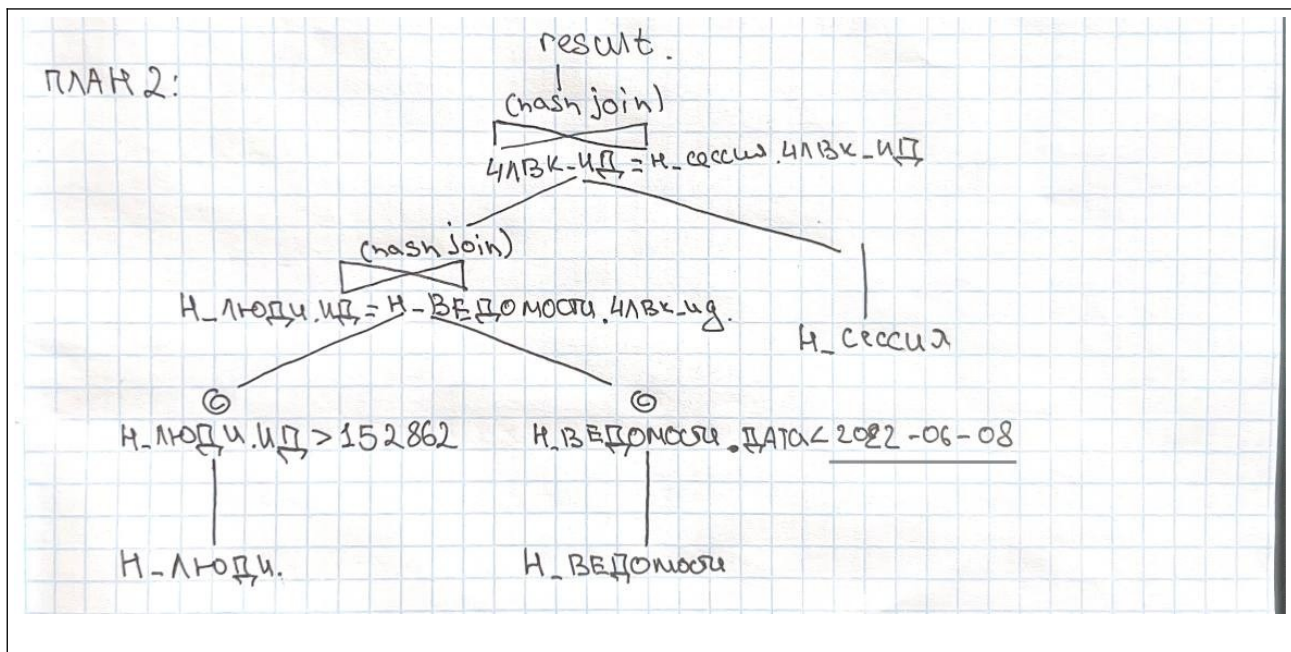 result.
ПЛАН 2:
(hash join)
ЧЛВК_ИД = Н_сессия.ЧЛВК_ИД
(hash join)
Н_ЛЮДИ.ИД = Н_ВЕДОМОСТИ.ЧЛВК_ид.
Н_сессия
Н_ЛЮДИ.ИД > 152862 Н_ВЕДОМОСТИ.ДАТА < 2022-06-08
Н_ЛЮДИ. Н_ВЕДОМОСТИ